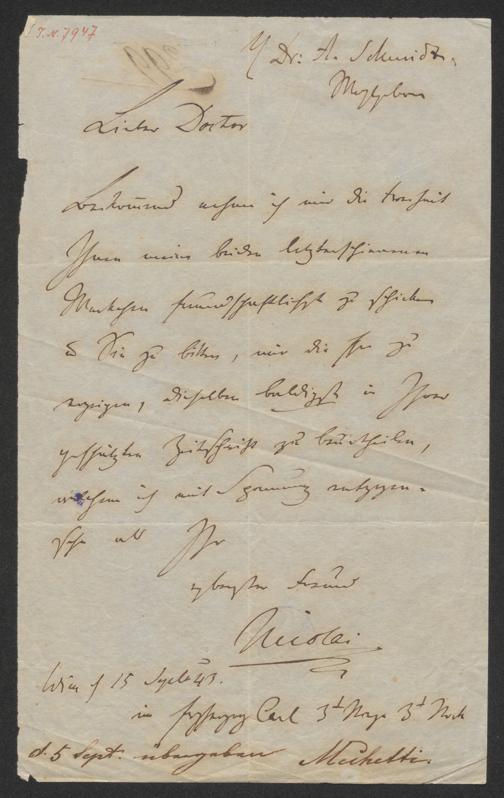 I.N. 7947
Dr: A. Schmidt.
Wohlgeboren
Lieber Doctor
nehme ich mir die Freiheit
Ihnen meine beiden letzterschienenen
freundschaftlichst zu schicken
Sie zu bitten, mir die Ehre zu
erzeigen, dieselben baldigst in Ihrer
geschätzten Zeitschrift zu beurtheilen,
welchem ich mit Spannung entgegen-
sehe als Ihr
ergebenster Freund
Nicolai
Wien 15 43.
im Erzherzog Carl 3t 3t Stock
d. 5 Sept. übergeben Mechetti